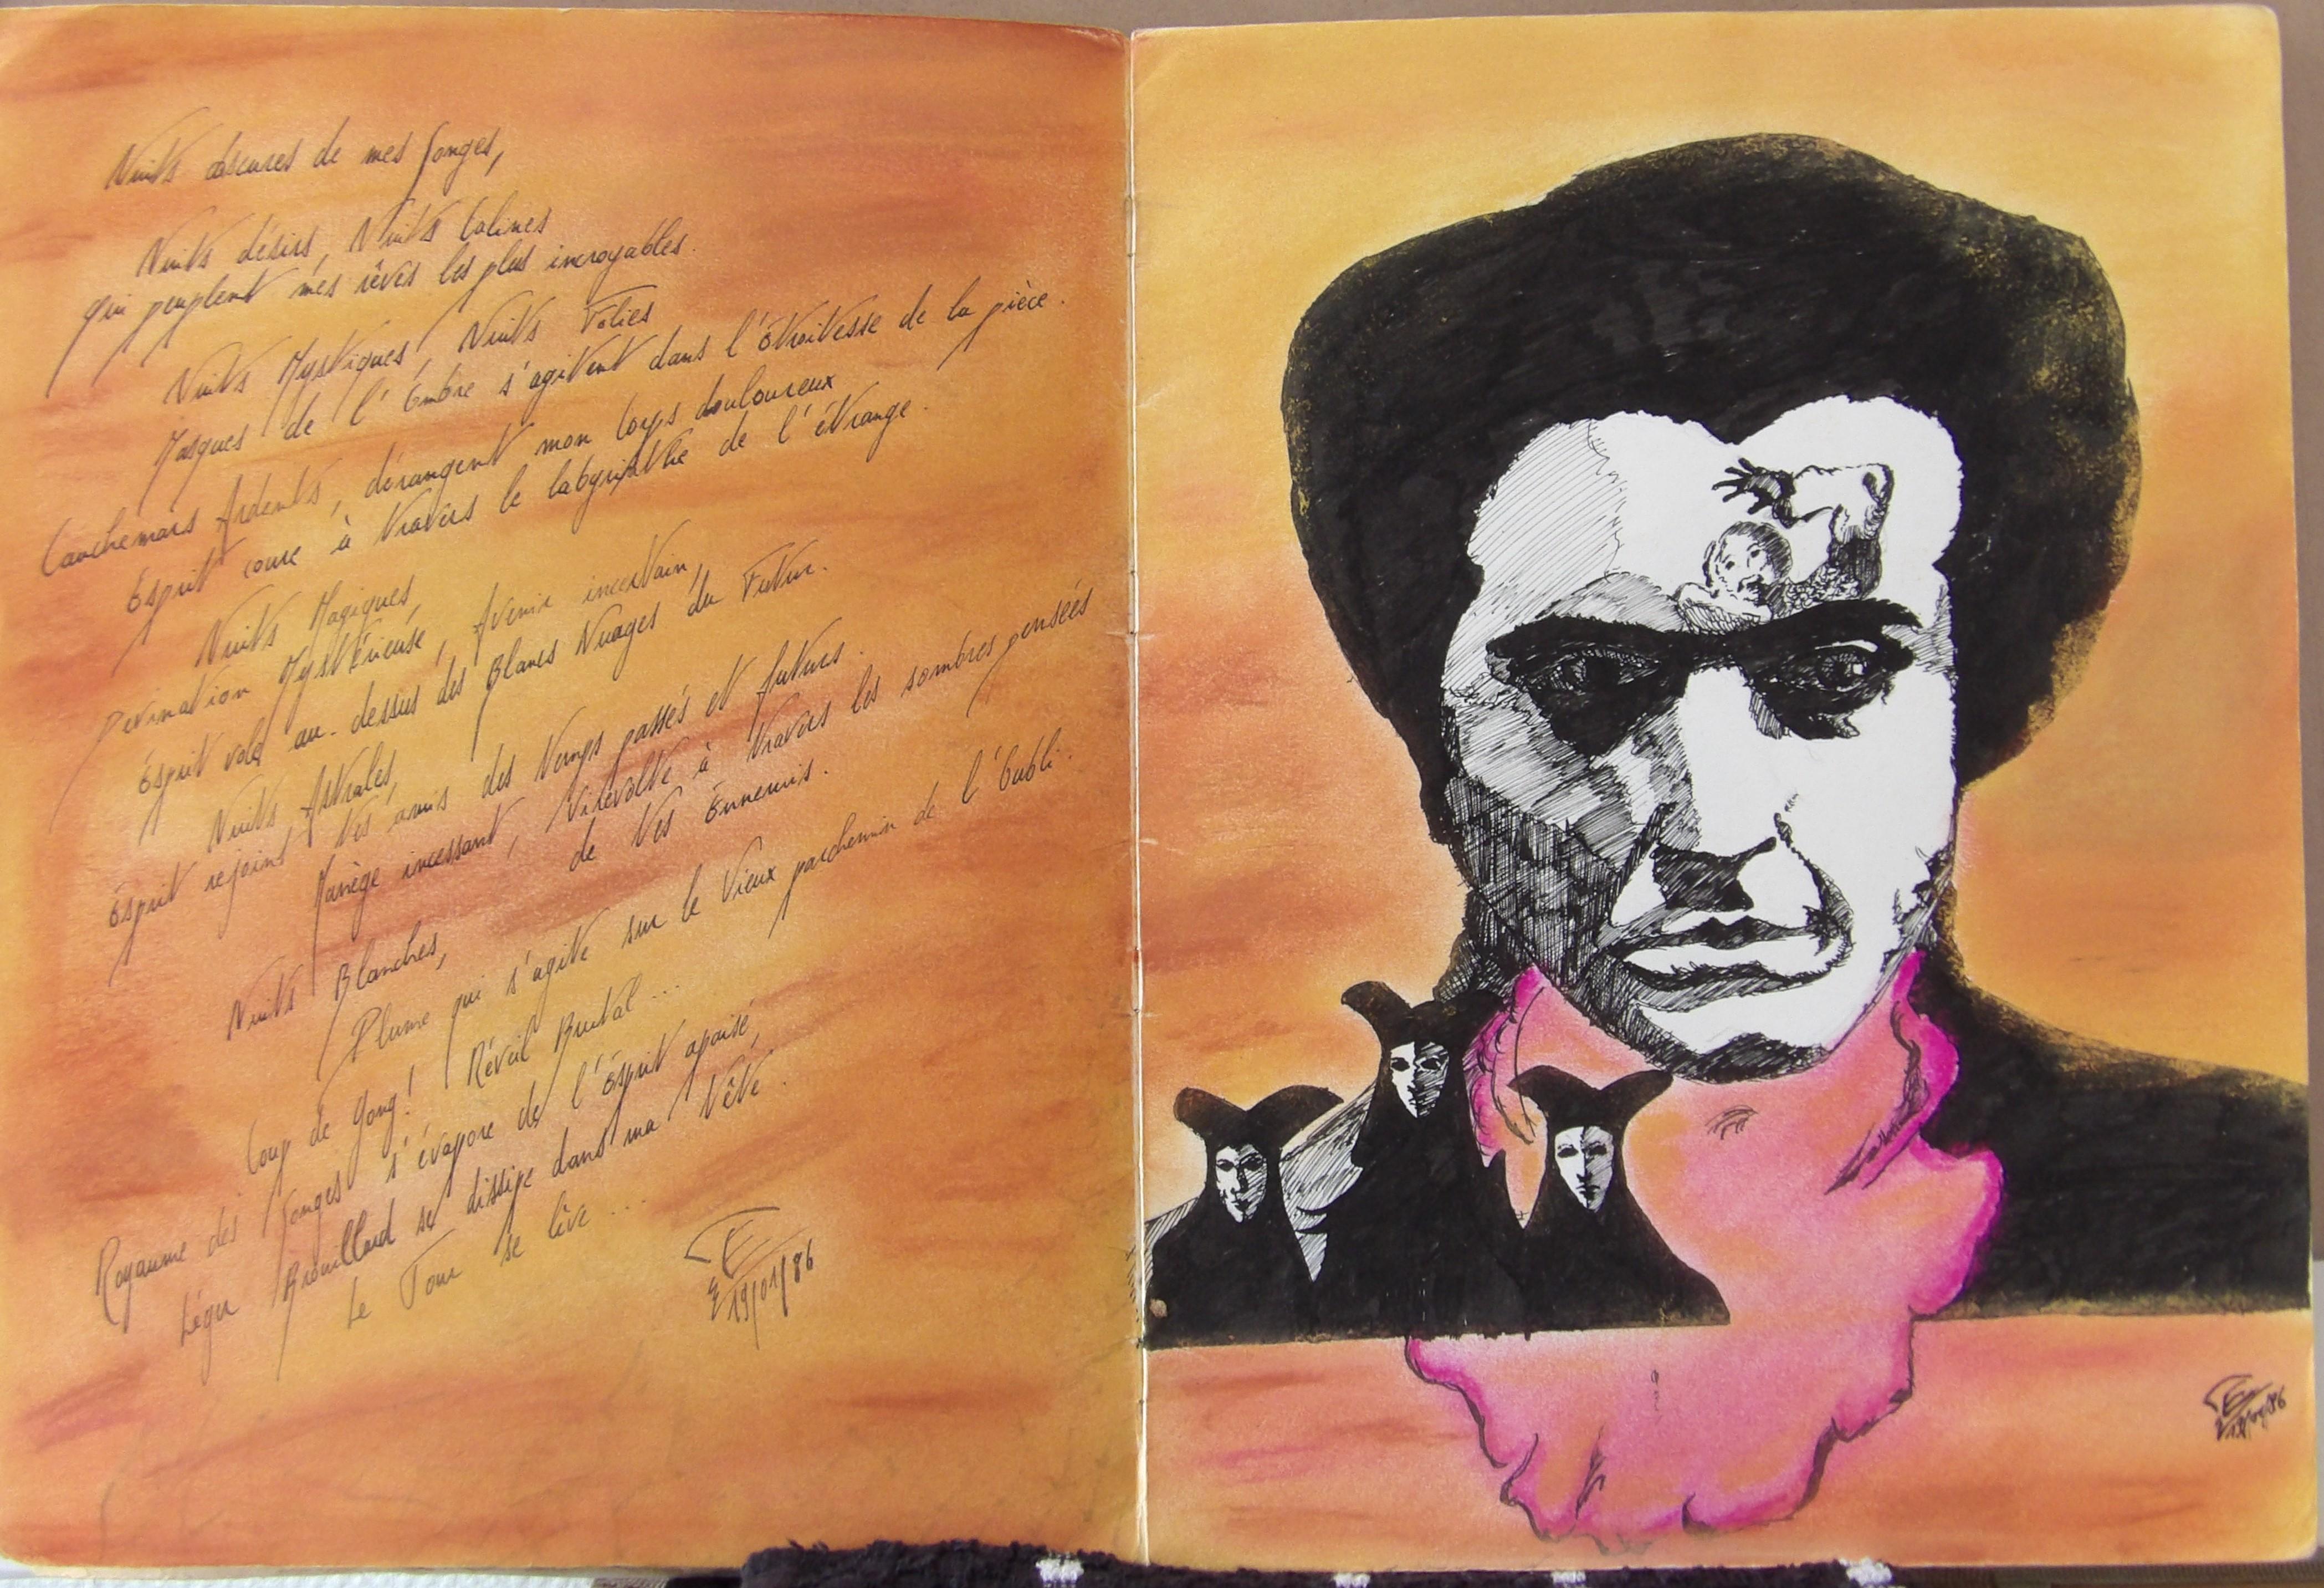 Nuits obscures de mes Songes,
Nuits désirs, Nuits Calines
qui peuplent mes rêves les plus incroyables.
Nuits Mystiques, Nuits Folies
Masques de l'Ombre s'agitent dans l'Étroitesse de la pièce.
Cauchemars Ardents, dérangent mon Corps douloureux
Esprit coure à travers le labyrinthe de l'étrange.
Nuits Magiques,
Divination Mystérieuse, Avenir incertain,
Esprit vole au-dessus des Blancs Nuages du Futur.
Nuits Astrales,
Esprit rejoint tes amis des temps passés et futurs.
Manège incessant, virevolte à travers les sombres pensées
de tes Ennemis.
Nuits Blanches,
Plume qui s'agite sur le Vieux parchemin de l'Oubli.
Coup de Gong! Réveil Brutal...
Royaume des Songes s'évapore de l'Esprit apaisé,
Léger Brouillard se dissipe dans ma tête.
Le Jour se lève...
19/01/86